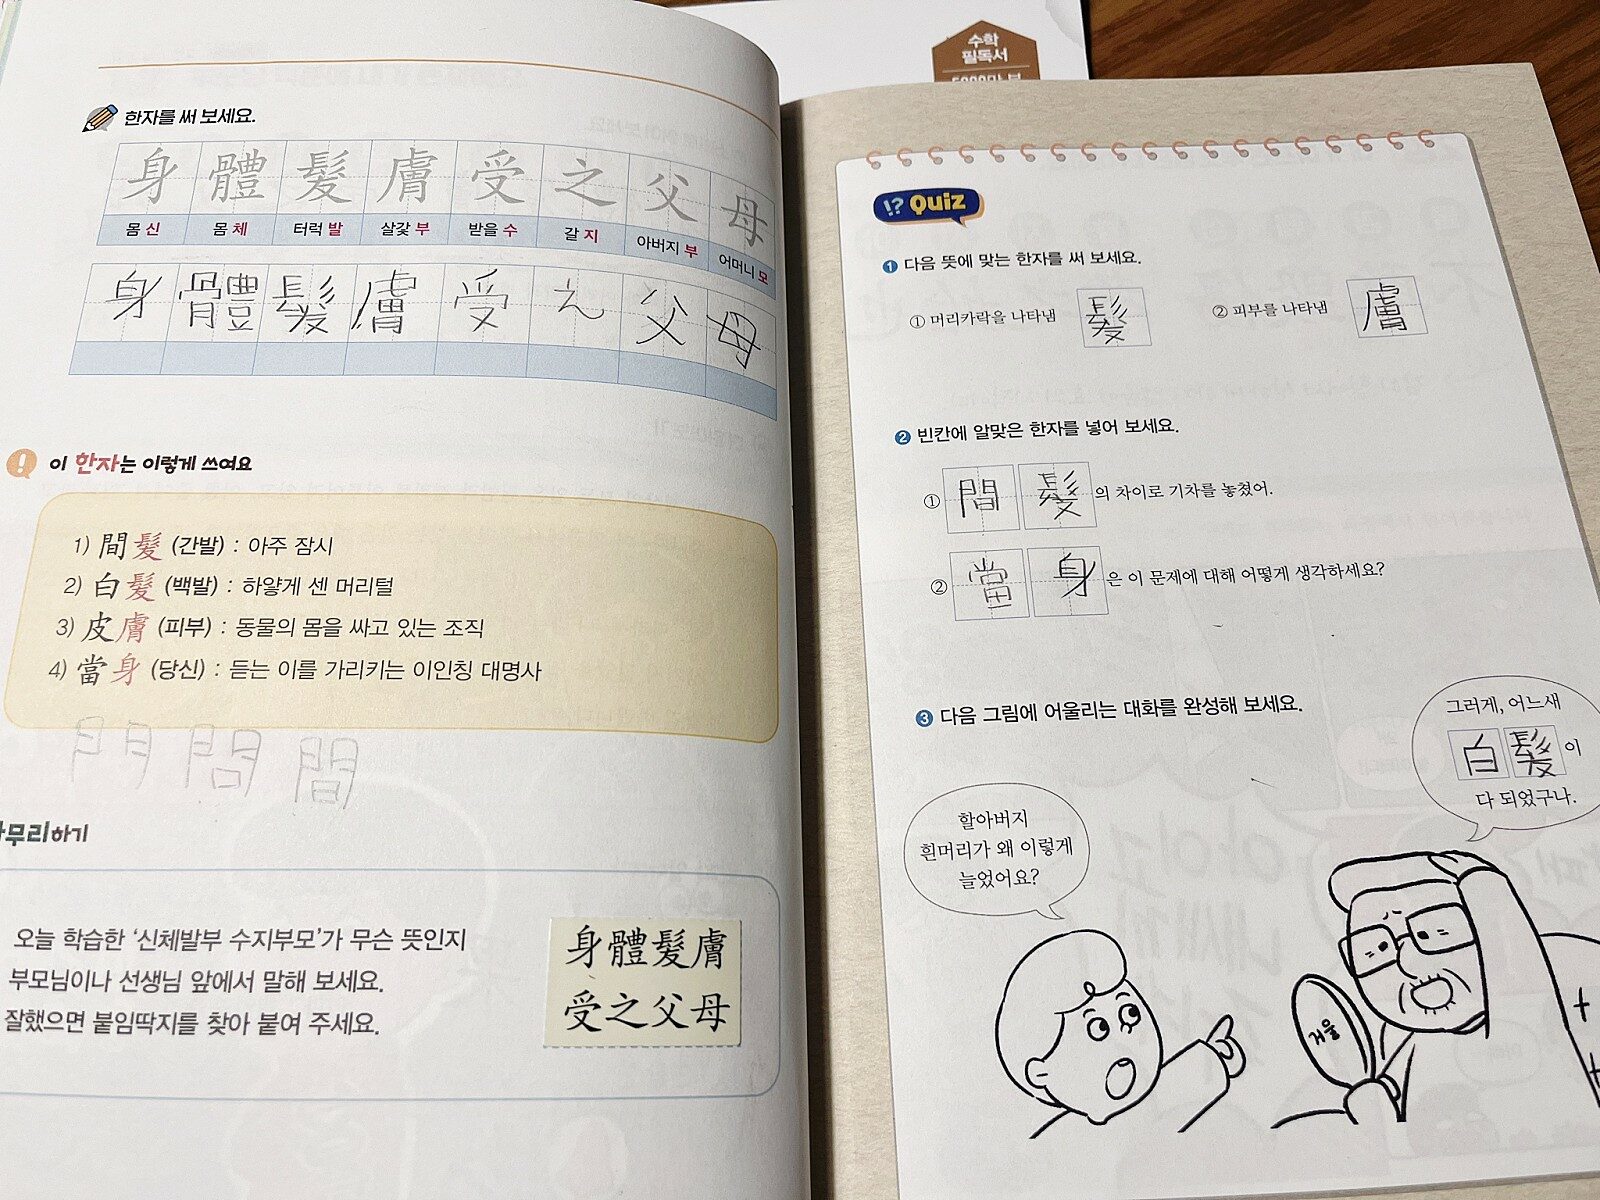 수학
필독서
한자를 써 보세요.
身 體 髮 膚 受 之 父 母
몸 신 몸 체 터럭 발 살갗 부 받을 수 갈 지 아버지 부 어머니 모
身 體 髮 膚 受 之 父 母
이 한자는 이렇게 쓰여요
1) 間髮 (간발) : 아주 잠시
2) 白髮 (백발) : 하얗게 센 머리털
3) 皮膚 (피부) : 동물의 몸을 싸고 있는 조직
4) 當身 (당신) : 듣는 이를 가리키는 이인칭 대명사
門 問 間
무리하기
오늘 학습한 ‘신체발부 수지부모’가 무슨 뜻인지
부모님이나 선생님 앞에서 말해 보세요.
잘했으면 붙임딱지를 찾아 붙여 주세요.
身體髮膚
受之父母
!? Quiz
1 다음 뜻에 맞는 한자를 써 보세요.
① 머리카락을 나타냄 髮 ② 피부를 나타냄 膚
2 빈칸에 알맞은 한자를 넣어 보세요.
① 間 髮 의 차이로 기차를 놓쳤어.
② 當 身 은 이 문제에 대해 어떻게 생각하세요?
3 다음 그림에 어울리는 대화를 완성해 보세요.
할아버지
흰머리가 왜 이렇게
늘었어요?
그러게, 어느새
白 髮 이
다 되었구나.
거울